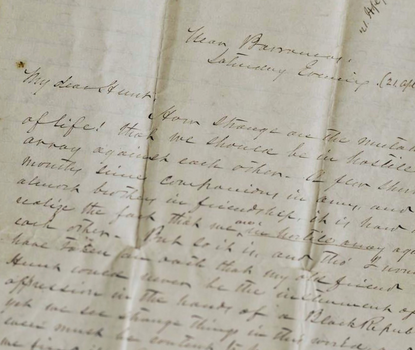 21 Apl
Near Barrancas,
Saturday Evening (21 Apl
My dear Hunt,
How strange are the mutat
of life! that we should be in hostile
array against each other. A few short
months since companions in arms, and
almost brothers in friendship, it is hard
realize the fact that we are in hostile array aga
each other. But so it is, and tho' I wou
have taken an oath that my old friend
Hunt would never be the instrument of
oppression in the hands of a Black Repub
yet we see strange things in this world a
must be content to